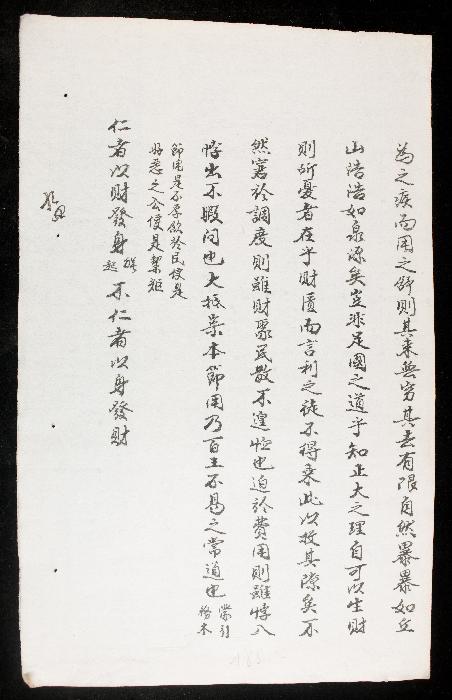 為之疾而用之舒則其來無窮其去有限自然暴暴如丘
山浩浩如泉源矣豈非足國之道乎知正大之理自可以生財
則所憂者在乎財匱而言利之徒不得乘此以投其隙矣不
然窘於調度則雖財聚民散不遑恤也迫於費用則雖悖入
悖出不暇問也大抵崇本節用乃百王不易之常道也
節用是不厚斂於民便是
好惡之公便是絜矩
仁者以財發身 起 不仁者以身發財